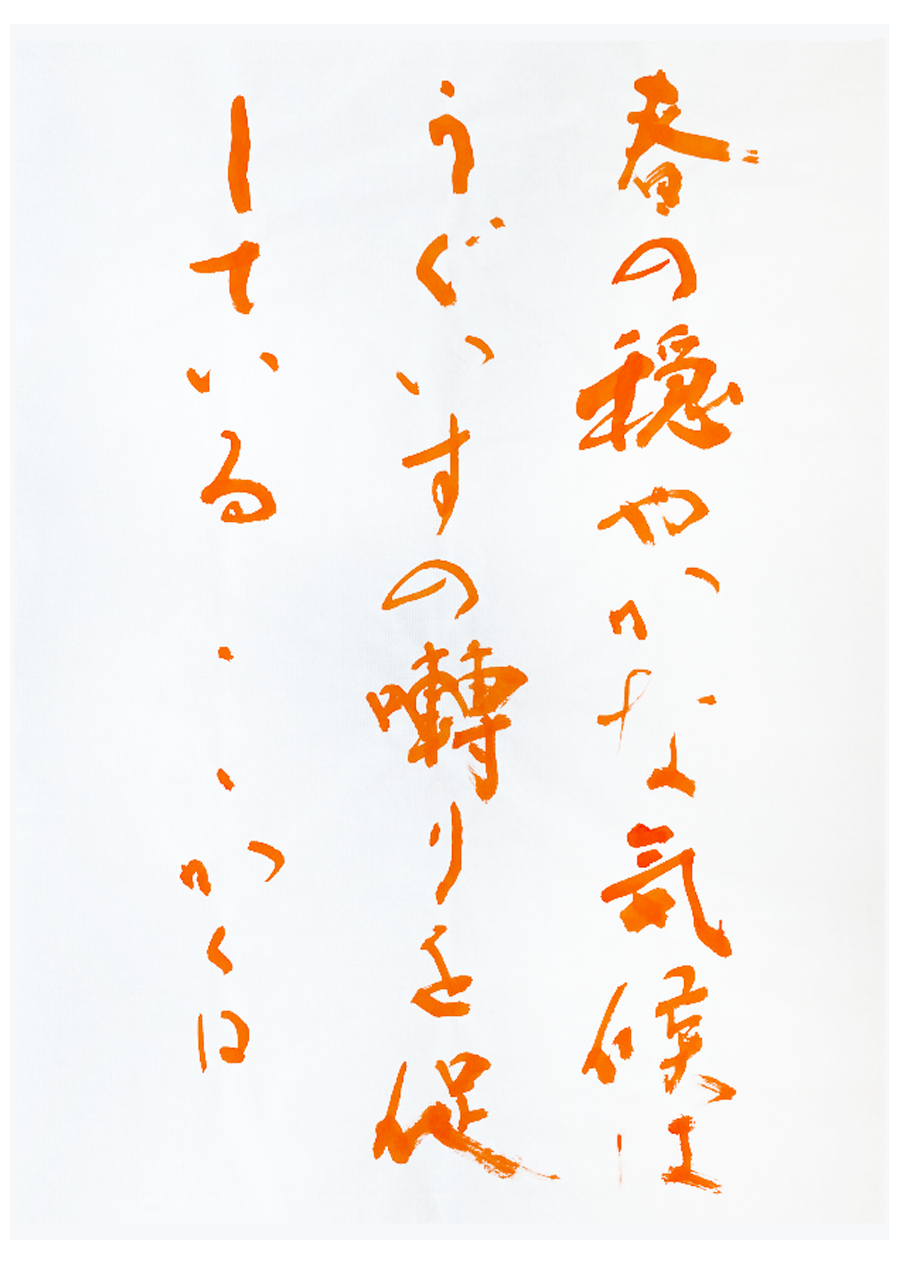 春の穏やかな気候は
うぐいすの囀りを促
している・・かくは